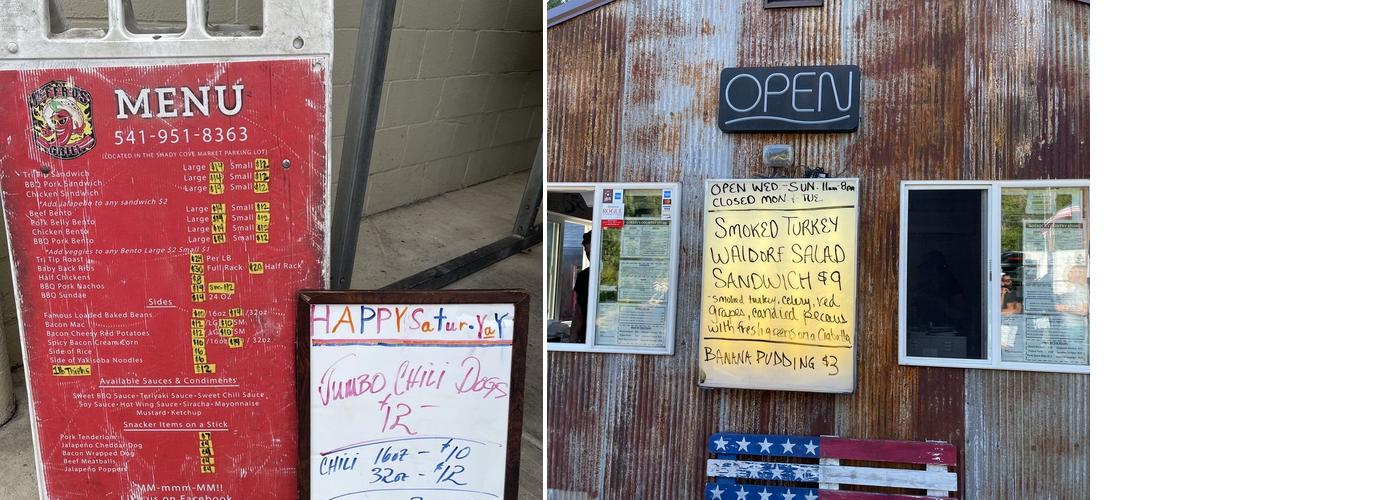 JEFFRO'S
GRILL
MENU
541-951-8363
(LOCATED IN THE SHADY COVE MARKET PARKING LOT)
Tri Tip Sandwich Large $14 Small $12
BBQ Pork Sandwich Large $14 Small $12
Chicken Sandwich Large $14 Small $12
*Add Jalapeño to any sandwich $2
Beef Bento Large $14 Small $12
Pork Belly Bento Large $14 Small $12
Chicken Bento Large $14 Small $12
BBQ Pork Bento Large $14 Small $12
*Add veggies to any Bento Large $2 Small $1
Tri Tip Roast Per LB
Baby Back Ribs Full Rack $20 Half Rack
Half Chickens
BBQ Pork Nachos $14 SM. $12
BBQ Sundae $14 24 OZ
Sides
Famous Loaded Baked Beans $10 /16oz $14 /32oz
Bacon Mac $12 /LG $10 SM
Bacon Cheesy Red Potatoes $12 /LG $10 SM
Spicy Bacon Cream Corn $10 /16oz $14 / 32oz
Side of Rice $6
Side of Yakisoba Noodles $6
$12
Available Sauces & Condiments
Sweet BBQ Sauce • Teriyaki Sauce • Sweet Chili Sauce
Soy Sauce • Hot Wing Sauce • Siracha • Mayonnaise
Mustard • Ketchup
Snacker Items on a Stick
Pork Tenderloin $7
Jalapeño Cheddar Dog
Bacon Wrapped Dog
Beef Meatballs
Jalapeño Poppers
MM-mmm-MM!!
us on Facebook
HAPPY Satur-YaY
Jumbo Chili Dogs
$12-
CHILI 16oz - $10
32oz - $12
OPEN
OPEN WED-SUN. 11am-8pm
CLOSED MON & TUE
SMOKED TURKEY
WALDORF SALAD
SANDWICH $9
-smoked turkey, celery, red
grapes, candied pecans
with fresh greens on a Ciabatta
BANANA PUDDING $3